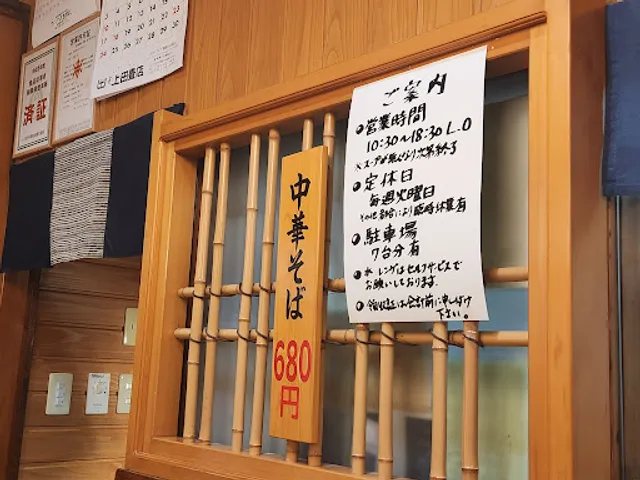 上田畳店
済証
中華そば
680
円
ご案内
●営業時間
10:30〜18:30 L.O
※スープが無くなり次第終了
●定休日
毎週火曜日
その他都合により臨時休業有
●駐車場
7台分有
●水、レンゲはセルフサービスで
お願いしております。
●領収証は会計前に申し付け
下さい。